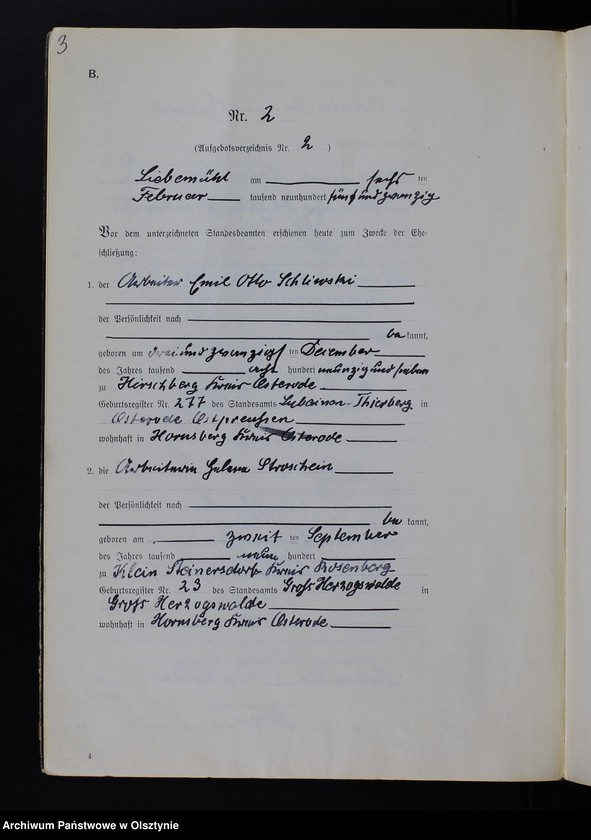 3
B.
Nr. 2
(Aufgebotsverzeichnis Nr. 2 )
Liebemühl am sechs ten
Februar tausend neunhundert fünfundzwanzig
Vor dem unterzeichneten Standesbeamten erschienen heute zum Zwecke der Ehe-
schließung:
1. der Arbeiter Emil Otto Schliewski
der Persönlichkeit nach
be kannt,
geboren am dreiundzwanzigs ten Dezember
des Jahres tausend acht hundert neunzig und sieben
zu Hirschberg Kreis Osterode
Geburtsregister Nr. 277 des Standesamts Thierberg in
Osterode Ostpreußen
wohnhaft in Hornsberg Kreis Osterode
2. die Arbeiterin Helene Stroschein
der Persönlichkeit nach
be kannt,
geboren am zweit ten September
des Jahres tausend neun hundert
zu Klein Steinersdorf Kreis Rosenberg
Geburtsregister Nr. 23 des Standesamts Groß Herzogswalde in
Groß Herzogswalde
wohnhaft in Hornsberg Kreis Osterode
4
Archiwum Państwowe w Olsztynie